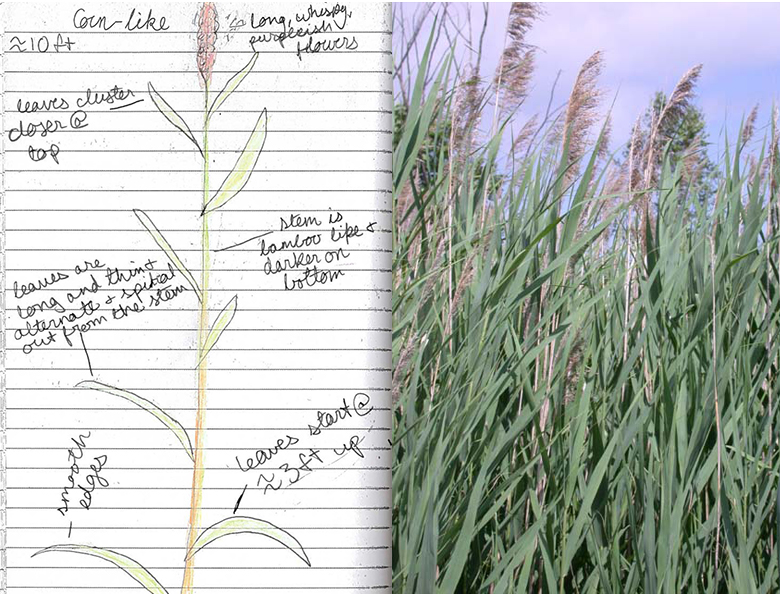 Corn-like
≈10ft
long, whispy,
purpleish
flowers
leaves cluster
closer @
top
stem is
bamboo like +
darker on
bottom
leaves are
long and thin +
alternate + spiral
out from the stem
leaves start @
≈ 3ft up
smooth
edges